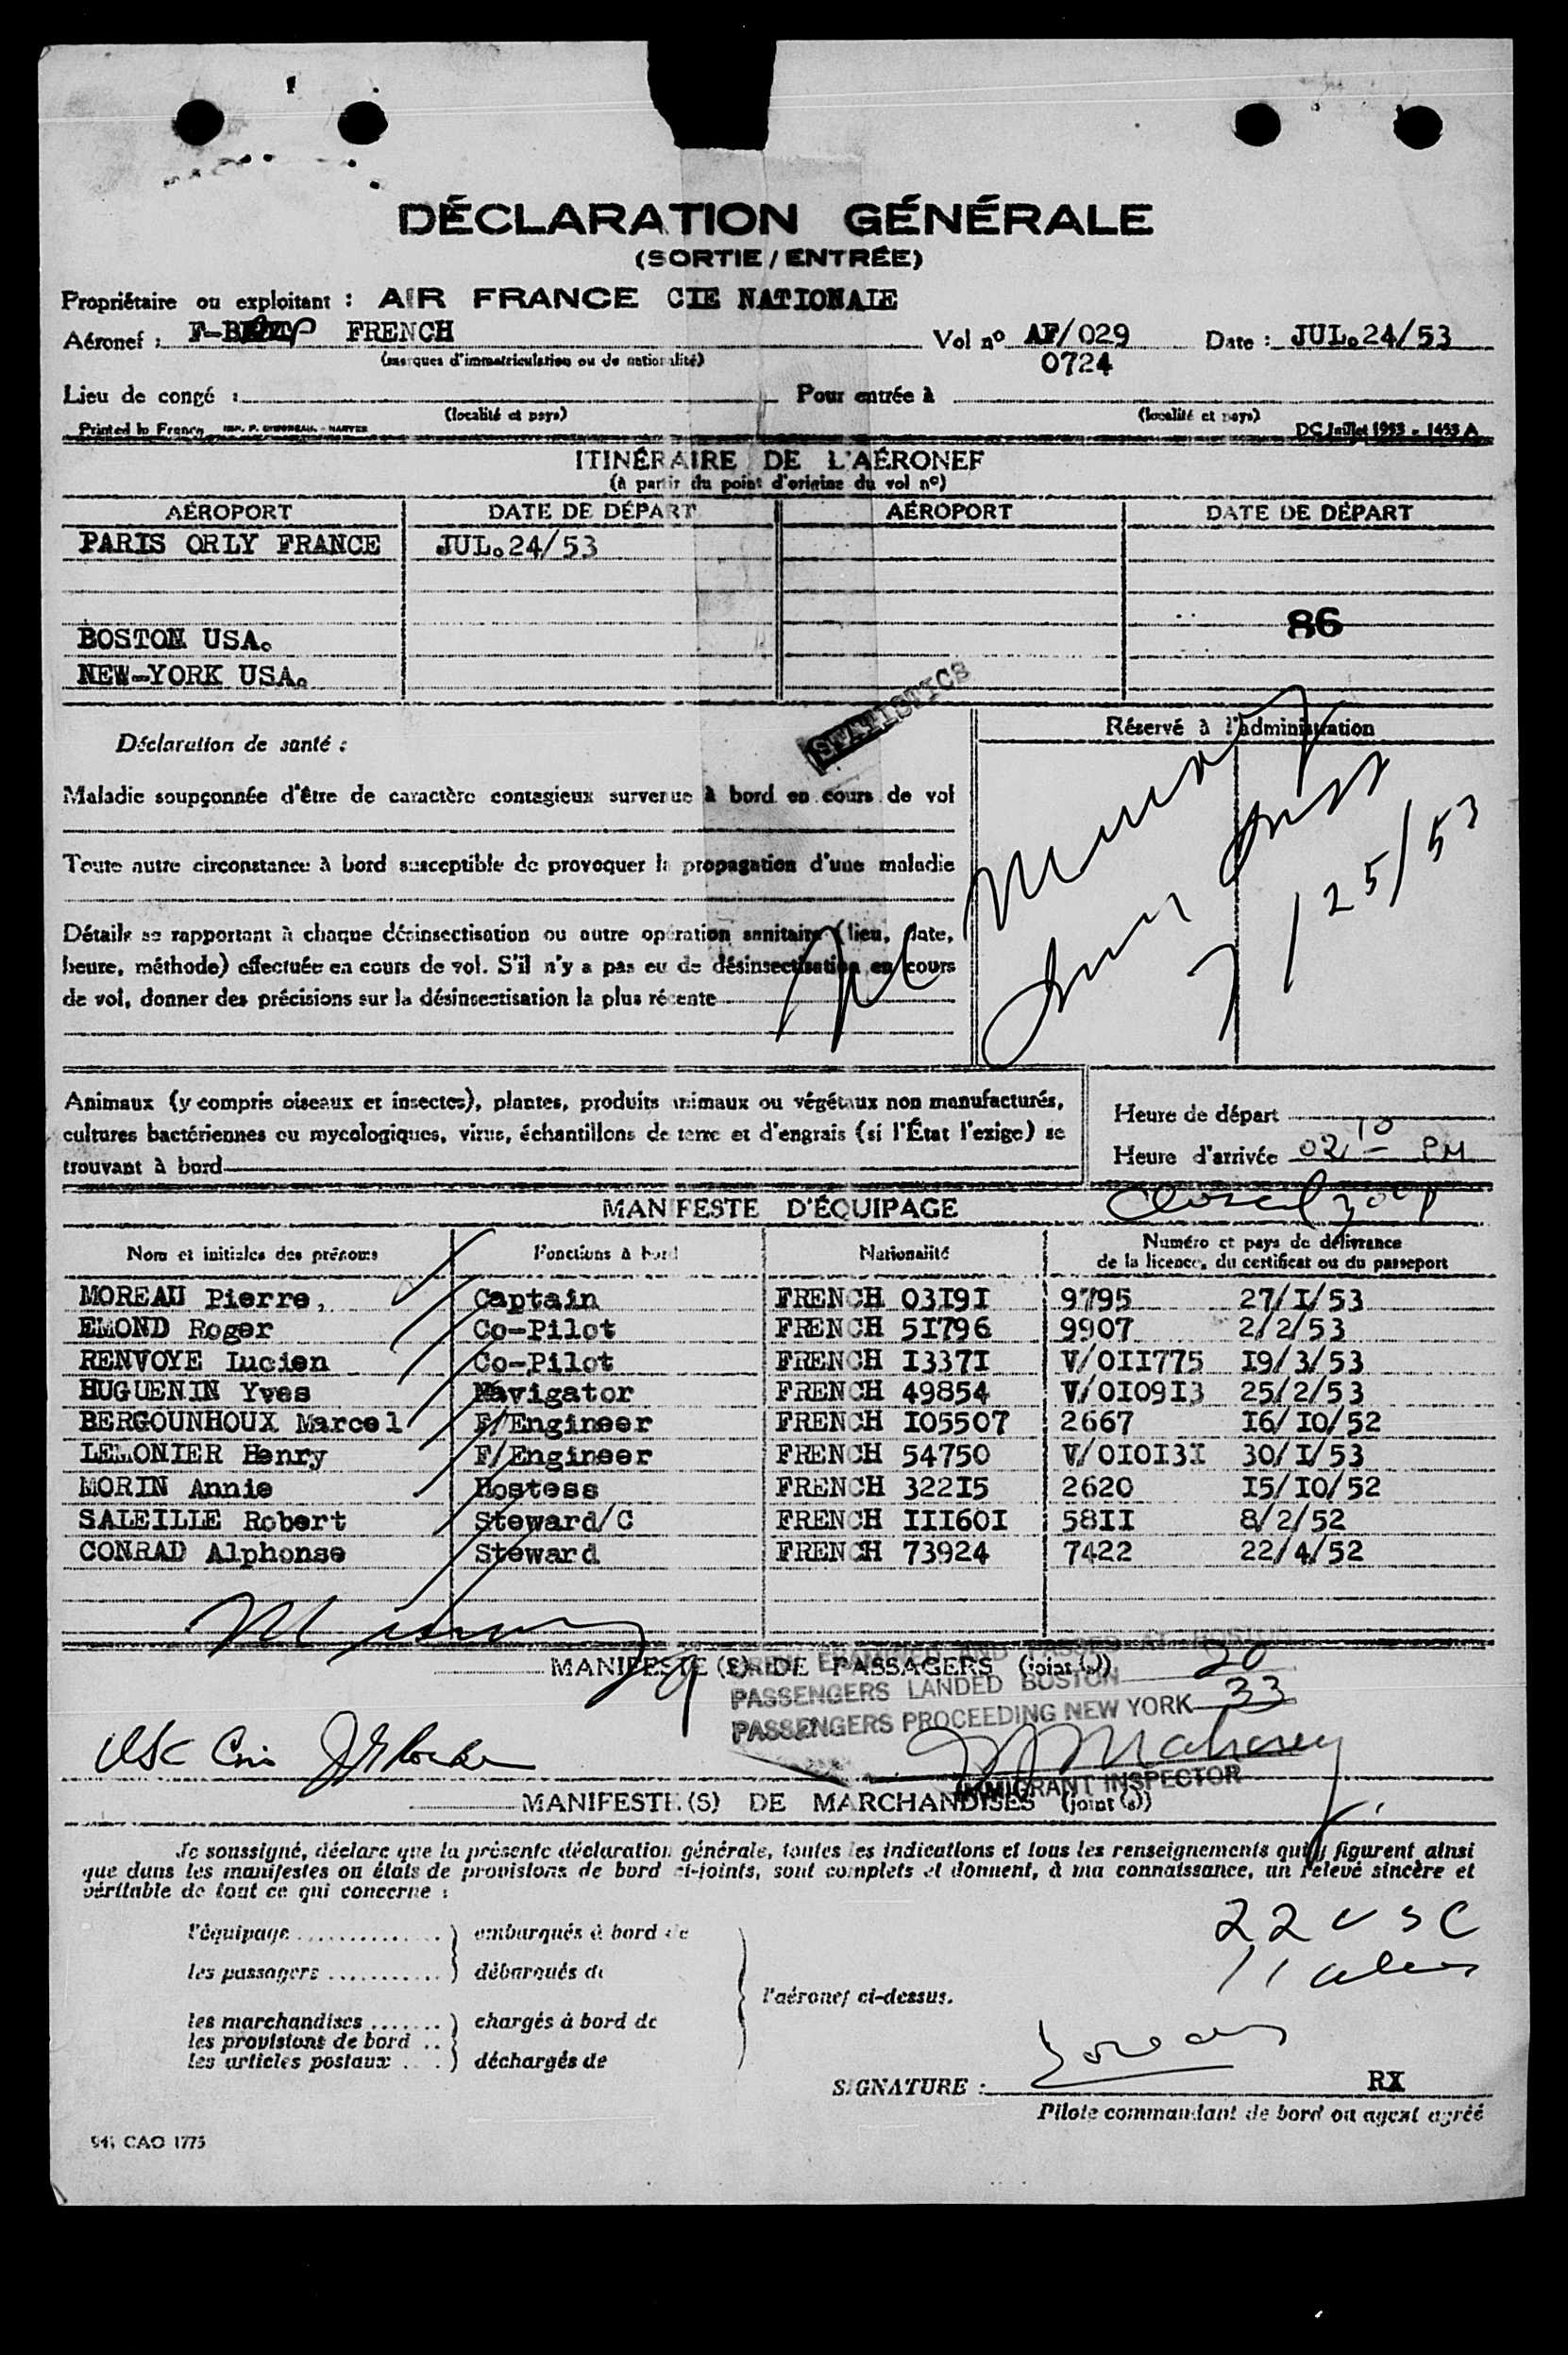 DÉCLARATION GÉNÉRALE
(SORTIE / ENTRÉE)
Propriétaire ou exploitant : AIR FRANCE CIE NATIONALE
Aéronef : FRENCH Vol nº AF/029 Date : JUL.24/53
(marques d'immatriculation ou de nationalité) 0724
Lieu de congé : Pour entrée à
(localité et pays) (localité et pays)
Printed in France DC Juillet 1953 - 1453 A
ITINÉRAIRE DE L'AÉRONEF
(à partir du point d'origine du vol nº)
AÉROPORT DATE DE DÉPART AÉROPORT DATE DE DÉPART
PARIS ORLY FRANCE JUL.24/53
86
BOSTON USA.
NEW-YORK USA.
STATISTICS
Réservé à l'administration
Déclaration de santé :
Maladie soupçonnée d'être de caractère contagieux survenue à bord en cours de vol
Toute autre circonstance à bord susceptible de provoquer la propagation d'une maladie
7/25/53
Détails se rapportant à chaque désinsectisation ou autre opération sanitaire (lieu, date,
heure, méthode) effectuée en cours de vol. S'il n'y a pas eu de désinsectisation en cours
de vol, donner des précisions sur la désinsectisation la plus récente
Animaux (y compris oiseaux et insectes), plantes, produits animaux ou végétaux non manufacturés,
cultures bactériennes ou mycologiques, virus, échantillons de terre et d'engrais (si l'État l'exige) se
trouvant à bord
Heure de départ
Heure d'arrivée 02 10 PM
MANIFESTE D'ÉQUIPAGE
Nom et initiales des prénoms Fonctions à bord Nationalité Numéro et pays de délivrance
de la licence, du certificat ou du passeport
MOREAU Pierre, Captain FRENCH 03I9I 9795 27/I/53
EMOND Roger Co-Pilot FRENCH 5I796 9907 2/2/53
RENVOYE Lucien Co-Pilot FRENCH I337I V/0II775 I9/3/53
HUGUENIN Yves Navigator FRENCH 49854 V/0I09I3 25/2/53
BERGOUNHOUX Marcel F/Engineer FRENCH I05507 2667 I6/I0/52
LEMONIER Henry F/Engineer FRENCH 54750 V/0I0I3I 30/I/53
MORIN Annie Hostess FRENCH 322I5 2620 I5/I0/52
SALEILLE Robert Steward/C FRENCH III60I 58II 8/2/52
CONRAD Alphonse Steward FRENCH 73924 7422 22/4/52
MANIFESTE (S) DE PASSAGERS (joint (s))
PASSENGERS LANDED BOSTON 20
PASSENGERS PROCEEDING NEW YORK 33
IMMIGRANT INSPECTOR
MANIFESTE (S) DE MARCHANDISES (joint (s))
Je soussigné, déclare que la présente déclaration générale, toutes les indications et tous les renseignements qui y figurent ainsi
que dans les manifestes ou états de provisions de bord ci-joints, sont complets et donnent, à ma connaissance, un relevé sincère et
véritable de tout ce qui concerne :
l'équipage embarqués à bord de
les passagers débarqués de
l'aéronef ci-dessus.
les marchandises chargés à bord de
les provisions de bord
les articles postaux déchargés de
22 USC
11 aliens
SIGNATURE : RX
Pilote commandant de bord ou agent agréé
CAO 1775